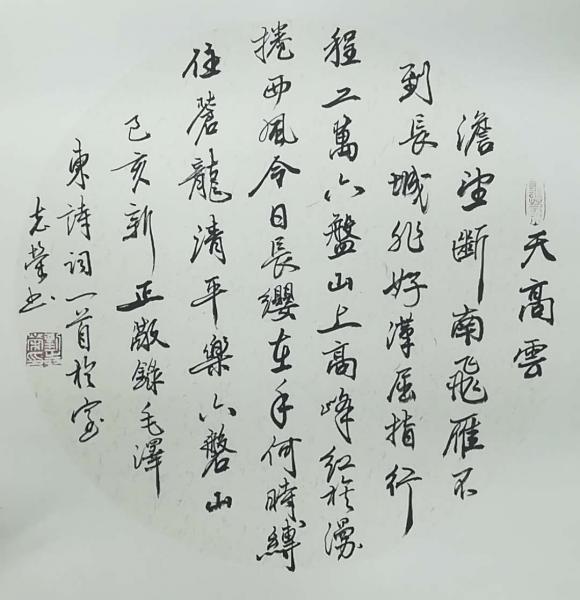 天高雲
澹望斷南飛雁不
到長城非好漢屈指行
程二萬六盤山上高峰红旗漫
捲西風今日長纓在手何時縛
住蒼龍清平樂六磐山
己亥新正敬錄毛澤
東詩词一首於
志榮书